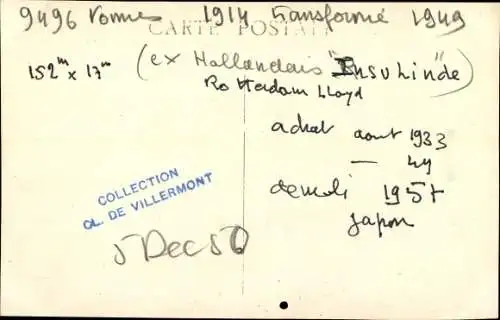 9496 tonnes 1914 transformé 1949
CARTE POSTALE
152m x 17m (ex Hollandais "Insulinde")
Rotterdam Lloyd
achat aout 1933
— 49
demoli 1957
Japon
COLLECTION
CL. DE VILLERMONT
5 Dec 50